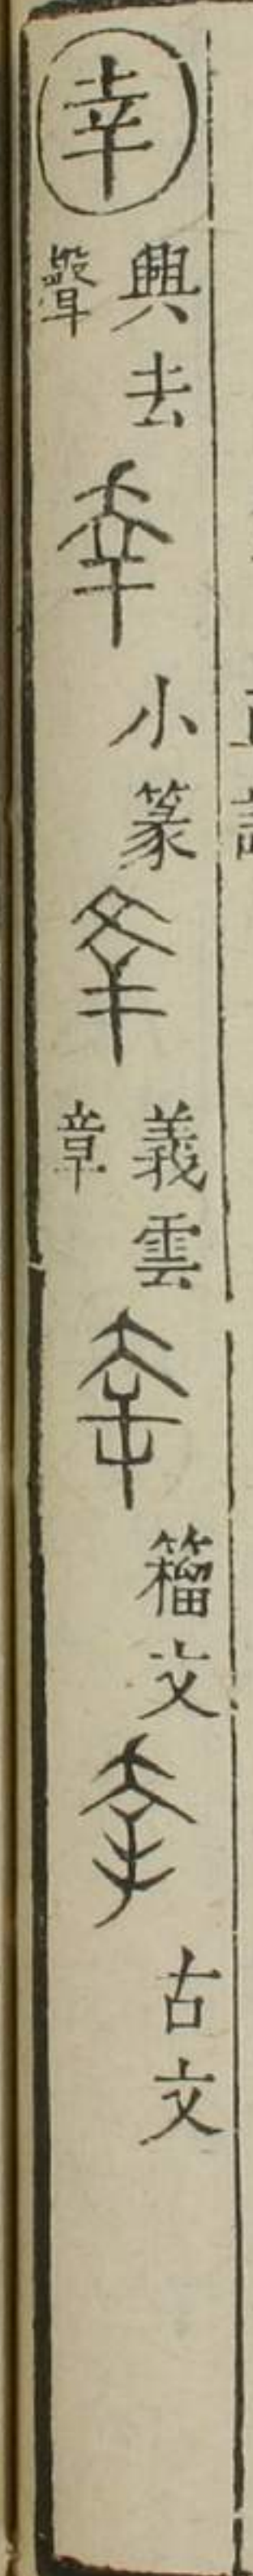 幸 興去聲 小篆 義雲章 籕文 古文